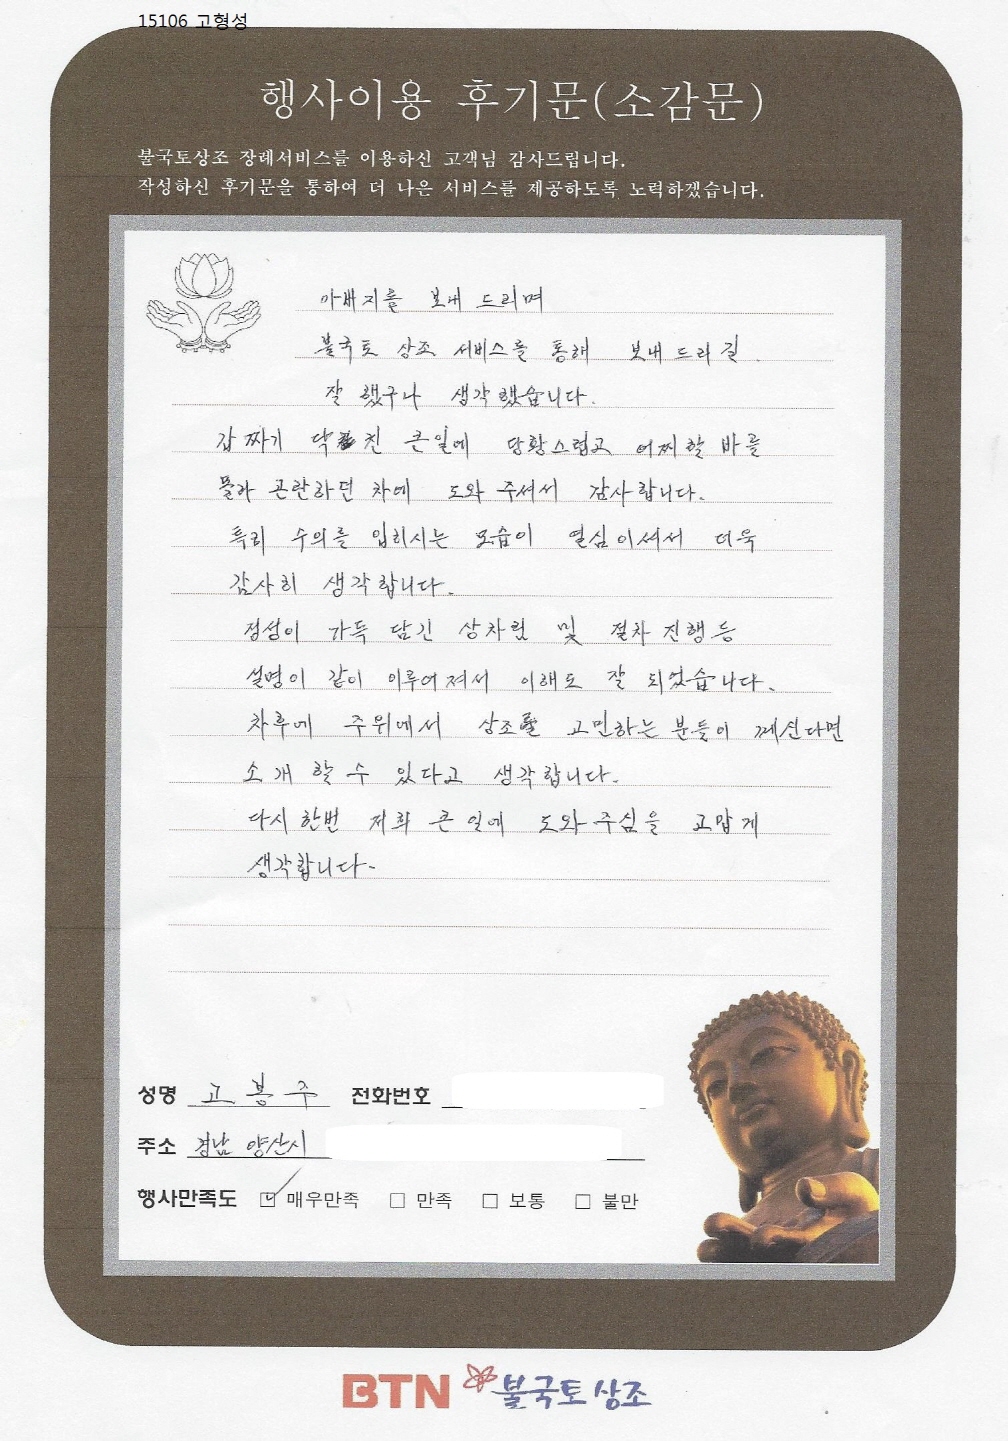 15106 고형성
행사이용 후기문(소감문)
불국토상조 장례서비스를 이용하신 고객님 감사드립니다.
작성하신 후기문을 통하여 더 나은 서비스를 제공하도록 노력하겠습니다.
아버지를 보내 드리며
불국토 상조 서비스를 통해 보내 드리길
잘 했구나 생각했습니다.
갑짜기 닥친 큰일에 당황스럽고 어찌할 바를
몰라 곤란하던 차에 도와 주셔서 감사합니다.
특히 수의를 입히시는 모습이 열심이셔서 더욱
감사히 생각합니다.
정성이 가득 담긴 상차림 및 절차 진행 등
설명이 같이 이루어져서 이해도 잘 되었습니다.
차후에 주위에서 상조를 고민하는 분들이 께신다면
소개 할 수 있다고 생각합니다.
다시 한번 저희 큰 일에 도와주심을 고맙게
생각합니다.
성명 고봉주 전화번호
주소 경남 양산시
행사만족도 ☑ 매우만족 □ 만족 □ 보통 □ 불만
BTN 불국토상조